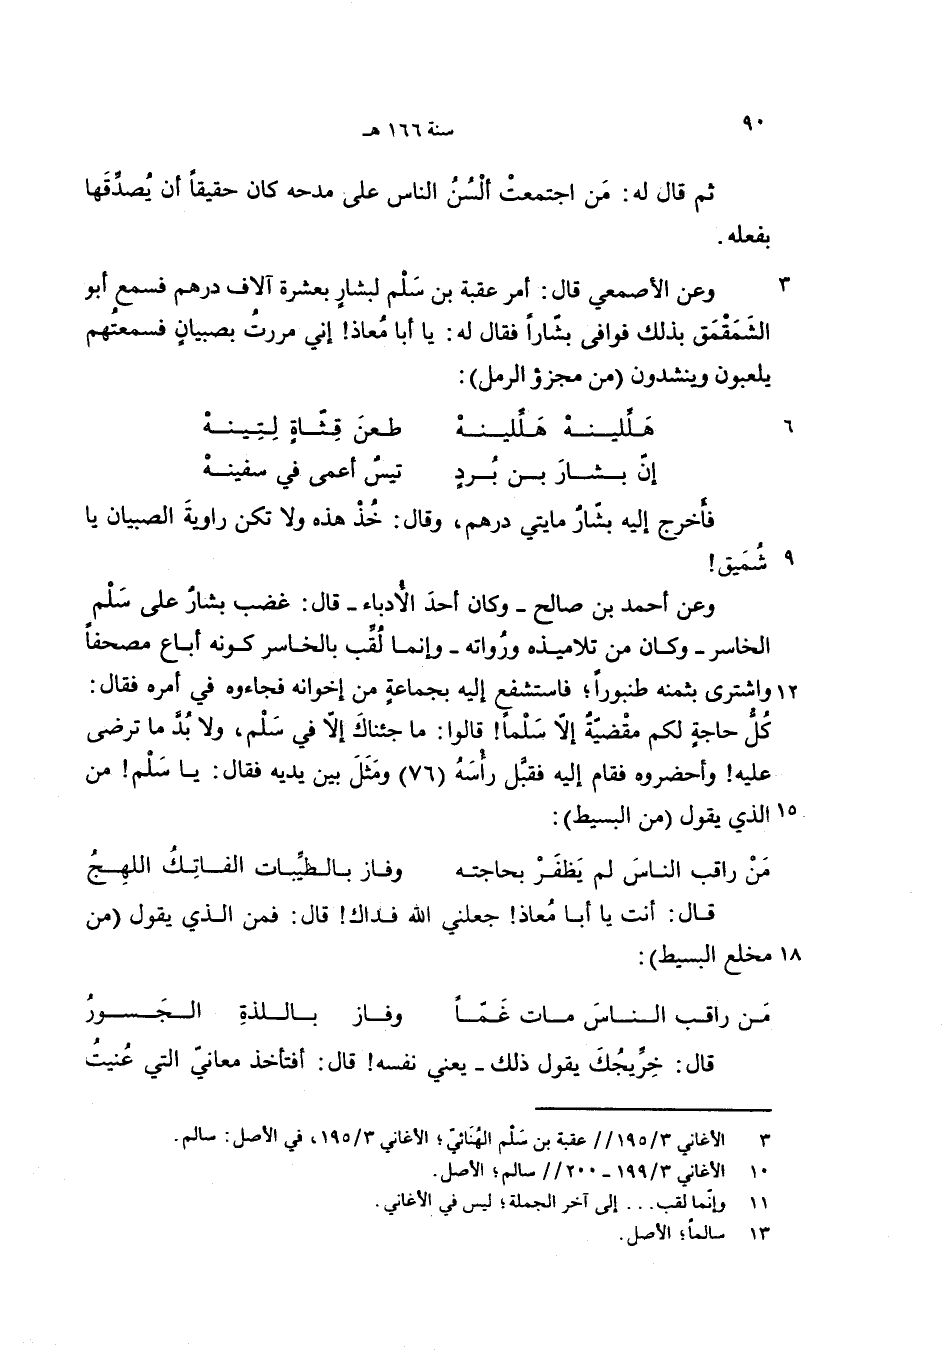 ٩٠
سنة ١٦٦ هـ
ثم قال له: مَن اجتمعتْ ألْسُنُ الناس على مدحه كان حقيقاً أن يُصدِّقَها
بفعله.
٣ وعن الأصمعي قال: أمر عقبة بن سَلْم لبشارٍ بعشرة آلاف درهم فسمع أبو
الشَمَقْمَق بذلك فوافى بشّاراً فقال له: يا أبا مُعاذ! إني مررتُ بصبيانٍ فسمعتُهم
يلعبون وينشدون (من مجزؤ الرمل):
٦ هَلَّلينهْ هَلَّلينهْ طعنَ قِثّاةٍ لتِينهْ
إنّ بشارَ بن بُردٍ تيسٌ أعمى في سفينهْ
فأخرج إليه بشّارُ مايتي درهم، وقال: خُذْ هذه ولا تكن راويةَ الصبيان يا
٩ شُمَيق!
وعن أحمد بن صالح ـ وكان أحدَ الأُدباء ـ قال: غضب بشارٌ على سَلْمٍ
الخاسر ـ وكان من تلاميذه ورُواته ـ وإنما لُقِّب بالخاسر كونه أباع مصحفاً
١٢ واشترى بثمنه طنبوراً؛ فاستشفع إليه بجماعةٍ من إخوانه فجاءوه في أمره فقال:
كُلُّ حاجةٍ لكم مقْضيّةٌ إلّا سَلْماً! قالوا: ما جئناكَ إلّا في سَلْم، ولا بُدَّ ما ترضى
عليه! وأحضروه فقام إليه فقبَّل رأْسَهُ (٧٦) ومَثَلَ بين يديه فقال: يا سَلْم! من
١٥ الذي يقول (من البسيط):
مَنْ راقب الناسَ لم يَظفَرْ بحاجته وفاز بالطيِّبات الفاتِكُ اللهِجُ
قال: أنت يا أبا مُعاذ! جعلني الله فداك! قال: فمن الذي يقول (من
١٨ مخلع البسيط):
مَن راقب الناسَ مات غَمّاً وفاز باللذةِ الجَسورُ
قال: خِرِّيجُكَ يقول ذلك ـ يعني نفسه! قال: أفتأخذ معانيّ التي عُنيتُ
٣ الأغاني ١٩٥/٣// عقبة بن سَلْم الهُنَائيّ؛ الأغاني ١٩٥/٣، في الأصل: سالم.
١٠ الأغاني ١٩٩/٣ ـ ٢٠٠// سالم؛ الأصل.
١١ وإنّما لقب... إلى آخر الجملة؛ ليس في الأغاني.
١٣ سالماً؛ الأصل.